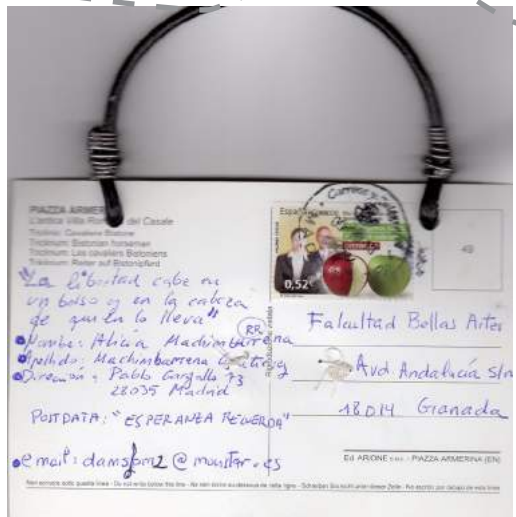 PIAZZA ARMERINA
L'antica Villa Romana del Casale
Triclinio: Cavaliere Bistone
Triclinum: Bistonian horseman
Triclinum: Les cavaliers Bistoniens
Triclinum: Reiter auf Bistonipferd
"La libertad cabe en
un bolso y en la cabeza
de quien lo lleva"
Nombre: Alicia Machimbarrena
Apellido: Machimbarrena
Dirección: Pablo Gargallo 73
28035 Madrid
POSTDATA: "ESPERANZA RECUERDA"
email: damspm2@munstar.es
RR
España CORREOS
0,52€
49
Facultad Bellas Artes
Avd. Andalucía S/n
18014 Granada
Ed. ARIONE s.n.c. - PIAZZA ARMERINA (EN)
Non scrivere sotto questa linea - Do not write below this line - Ne rien écrire au-dessous de cette ligne